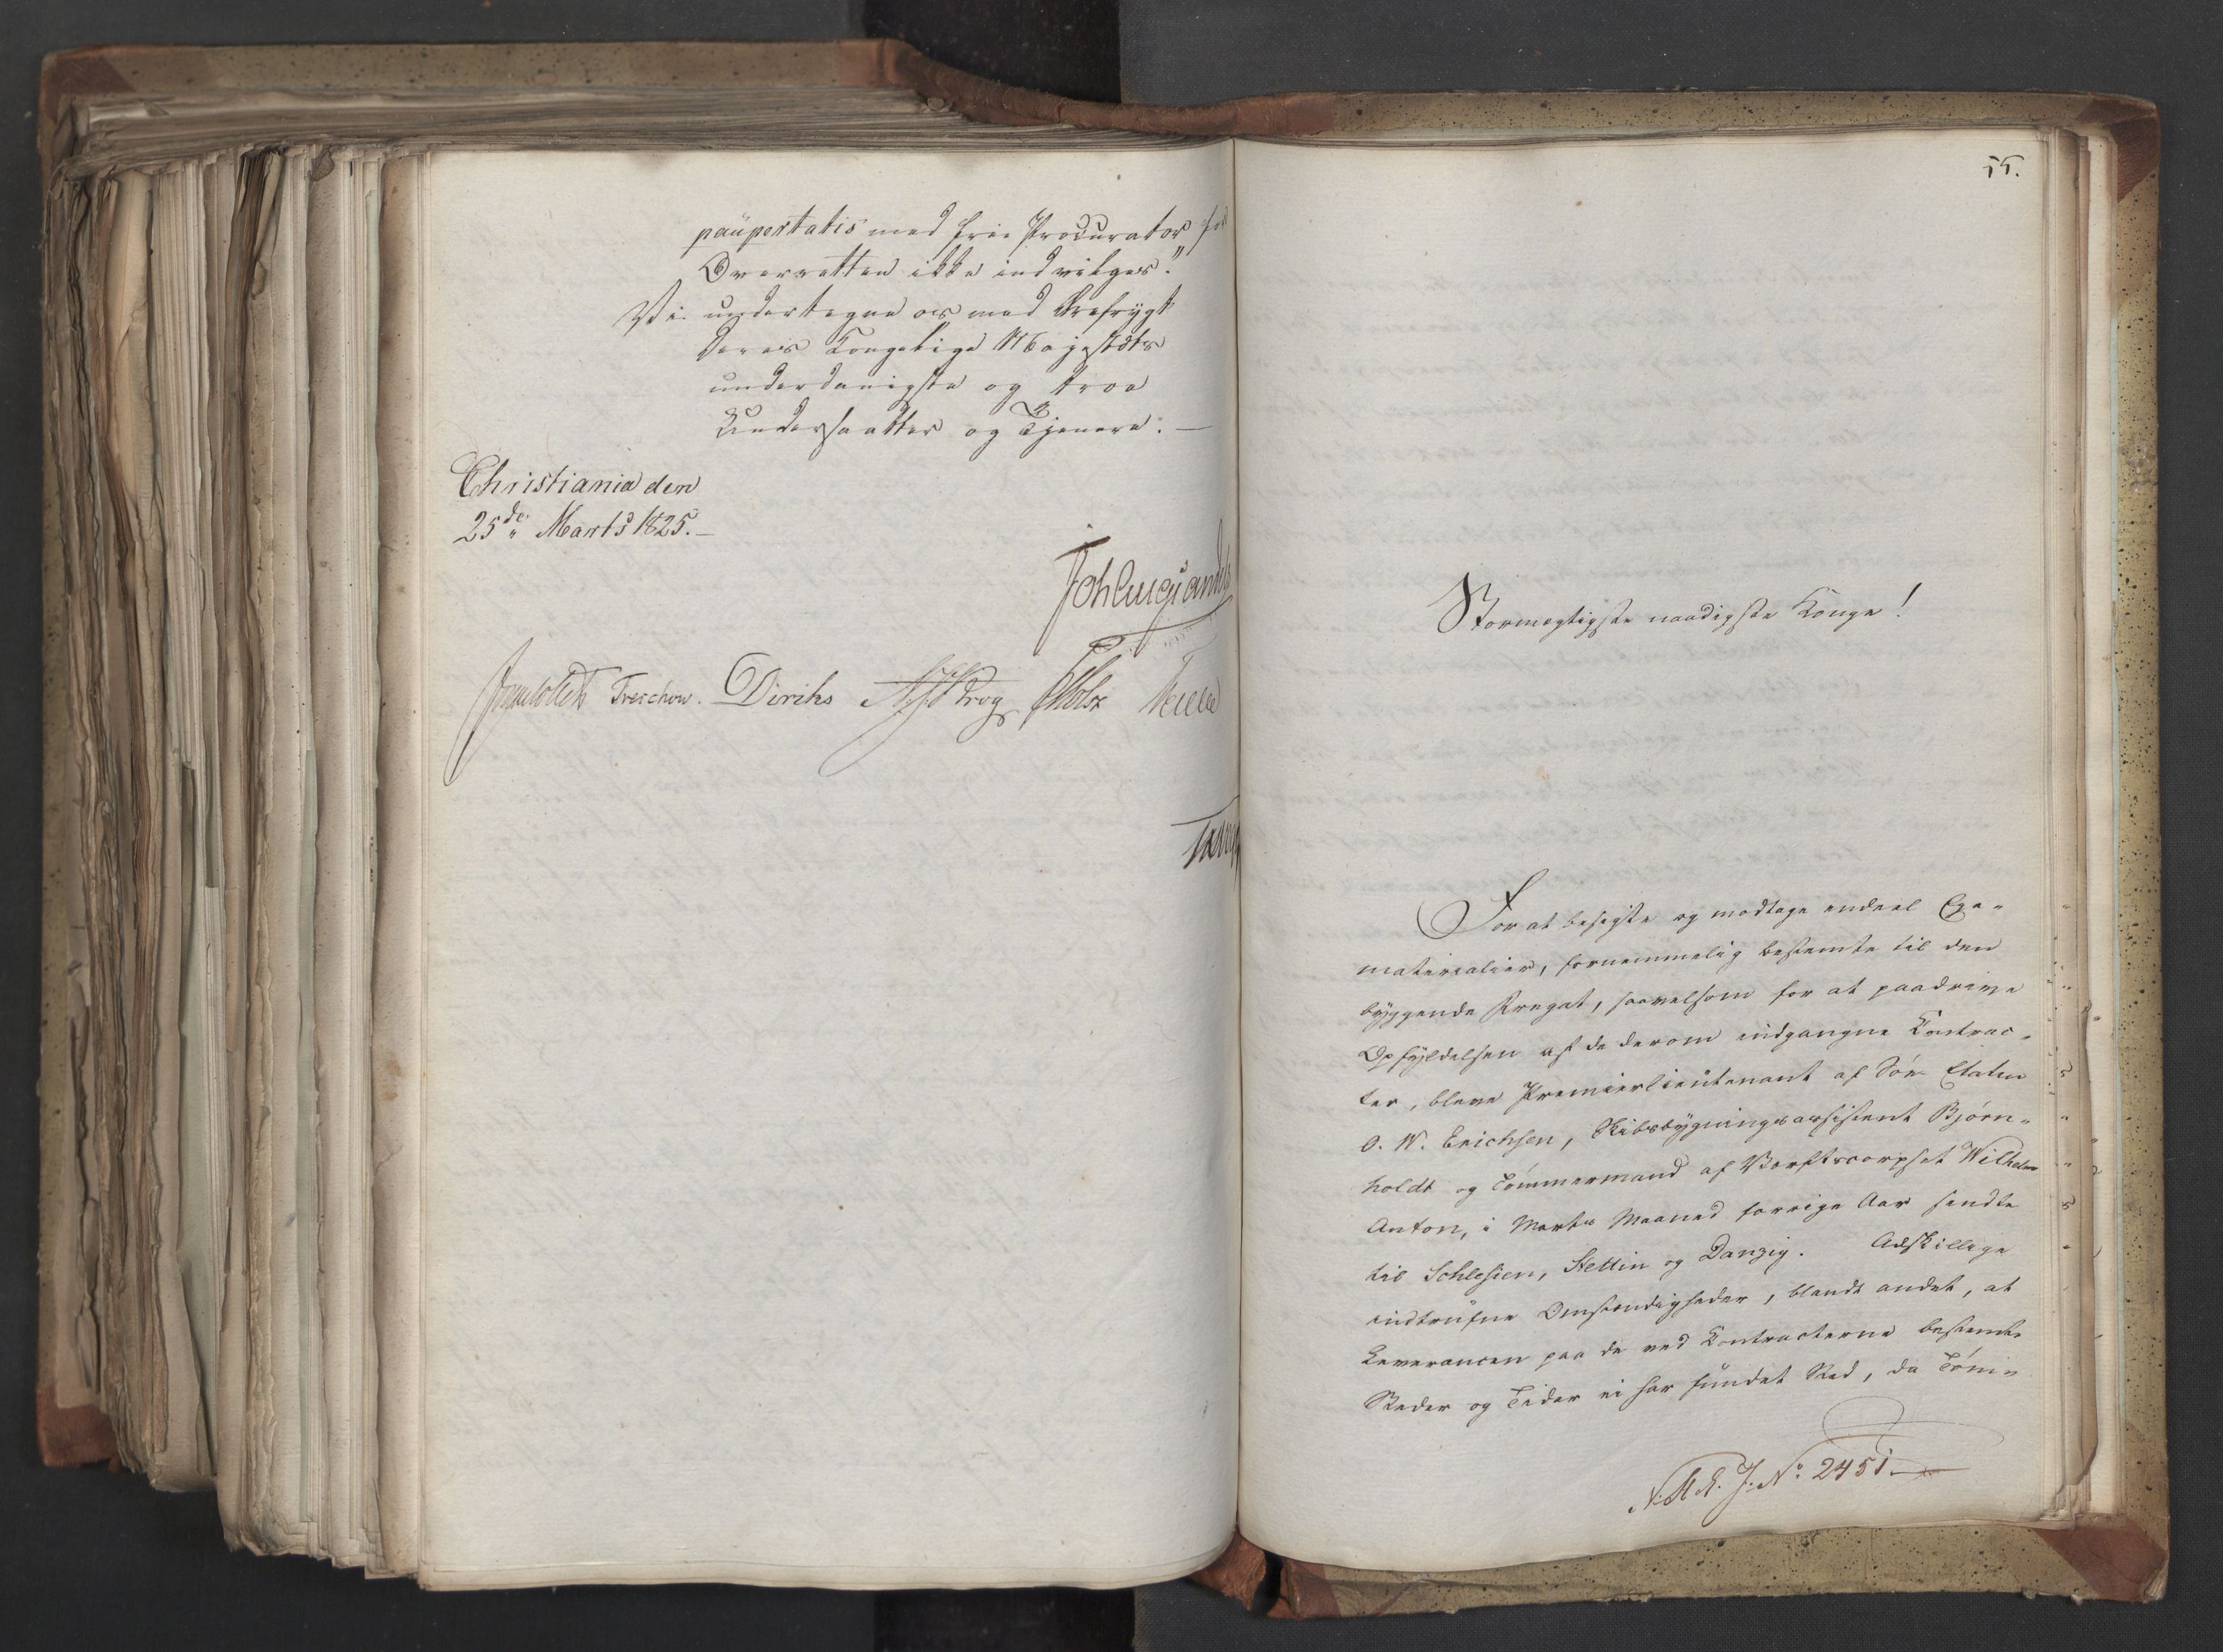 paupertatis med frie Procurator for
Overretten ikke indvilges."
Vi undertegne os med Ærefrygt
Deres Kongelige Majestæts
underdanigste og troe
Undersaatter og Tjenere. —
Christiania den
25de Marts 1825. —
Treschow. Diriks Krog Holst
55.
Stormægtigste naadigste Konge!
For at besigte og modtage endeel Ege-
materialier, fornemmelig bestemte til den
byggende Fregat, saavelsom for at paadrive
Opfyldelsen af de derom indgangne Contrac-
ter, bleve Premierlieutenant af Søe Etaten
O. W. Erichsen, Skibsbygningsassistent Bjørn-
holdt og Tømmermand af Værftscorpset Wilhelm
Anton, i Marts Maaned forrige Aar sendte
til Schlesien, Stettin og Danzig. Adskillige
indtrufne Omstændigheder, blandt andet, at
Leverancen paa de ved Contracterne bestemte
Steder og Tider ei har fundet Sted, da Tøm-
J. No. 2451. —